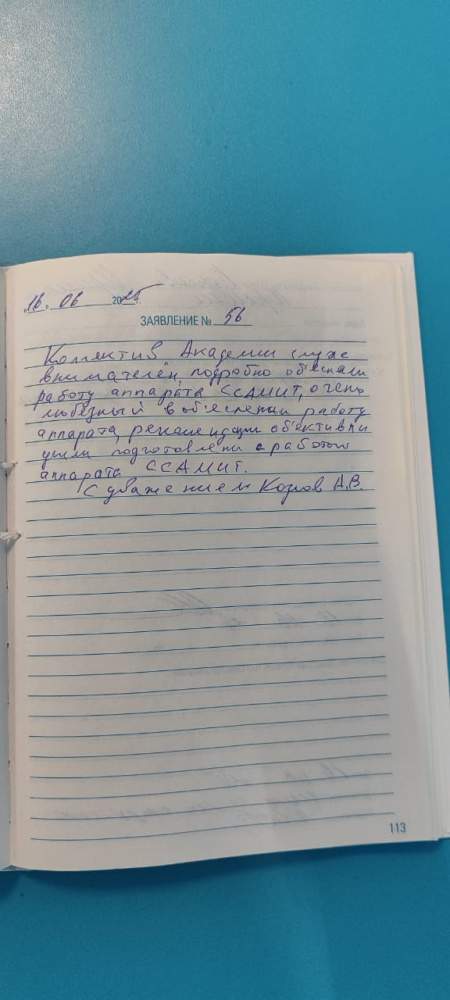 16. 06 2025
ЗАЯВЛЕНИЕ № 56
Коллектив Академии слухе
внимателен, подробно объяснили
работу аппарата ССАМИТ, очень
любезный в объеснении работу
аппарата, рекомендации объективны
ушли подготовлены с работой
аппарата ССАМИТ.
С уважением Коров А.В.
113